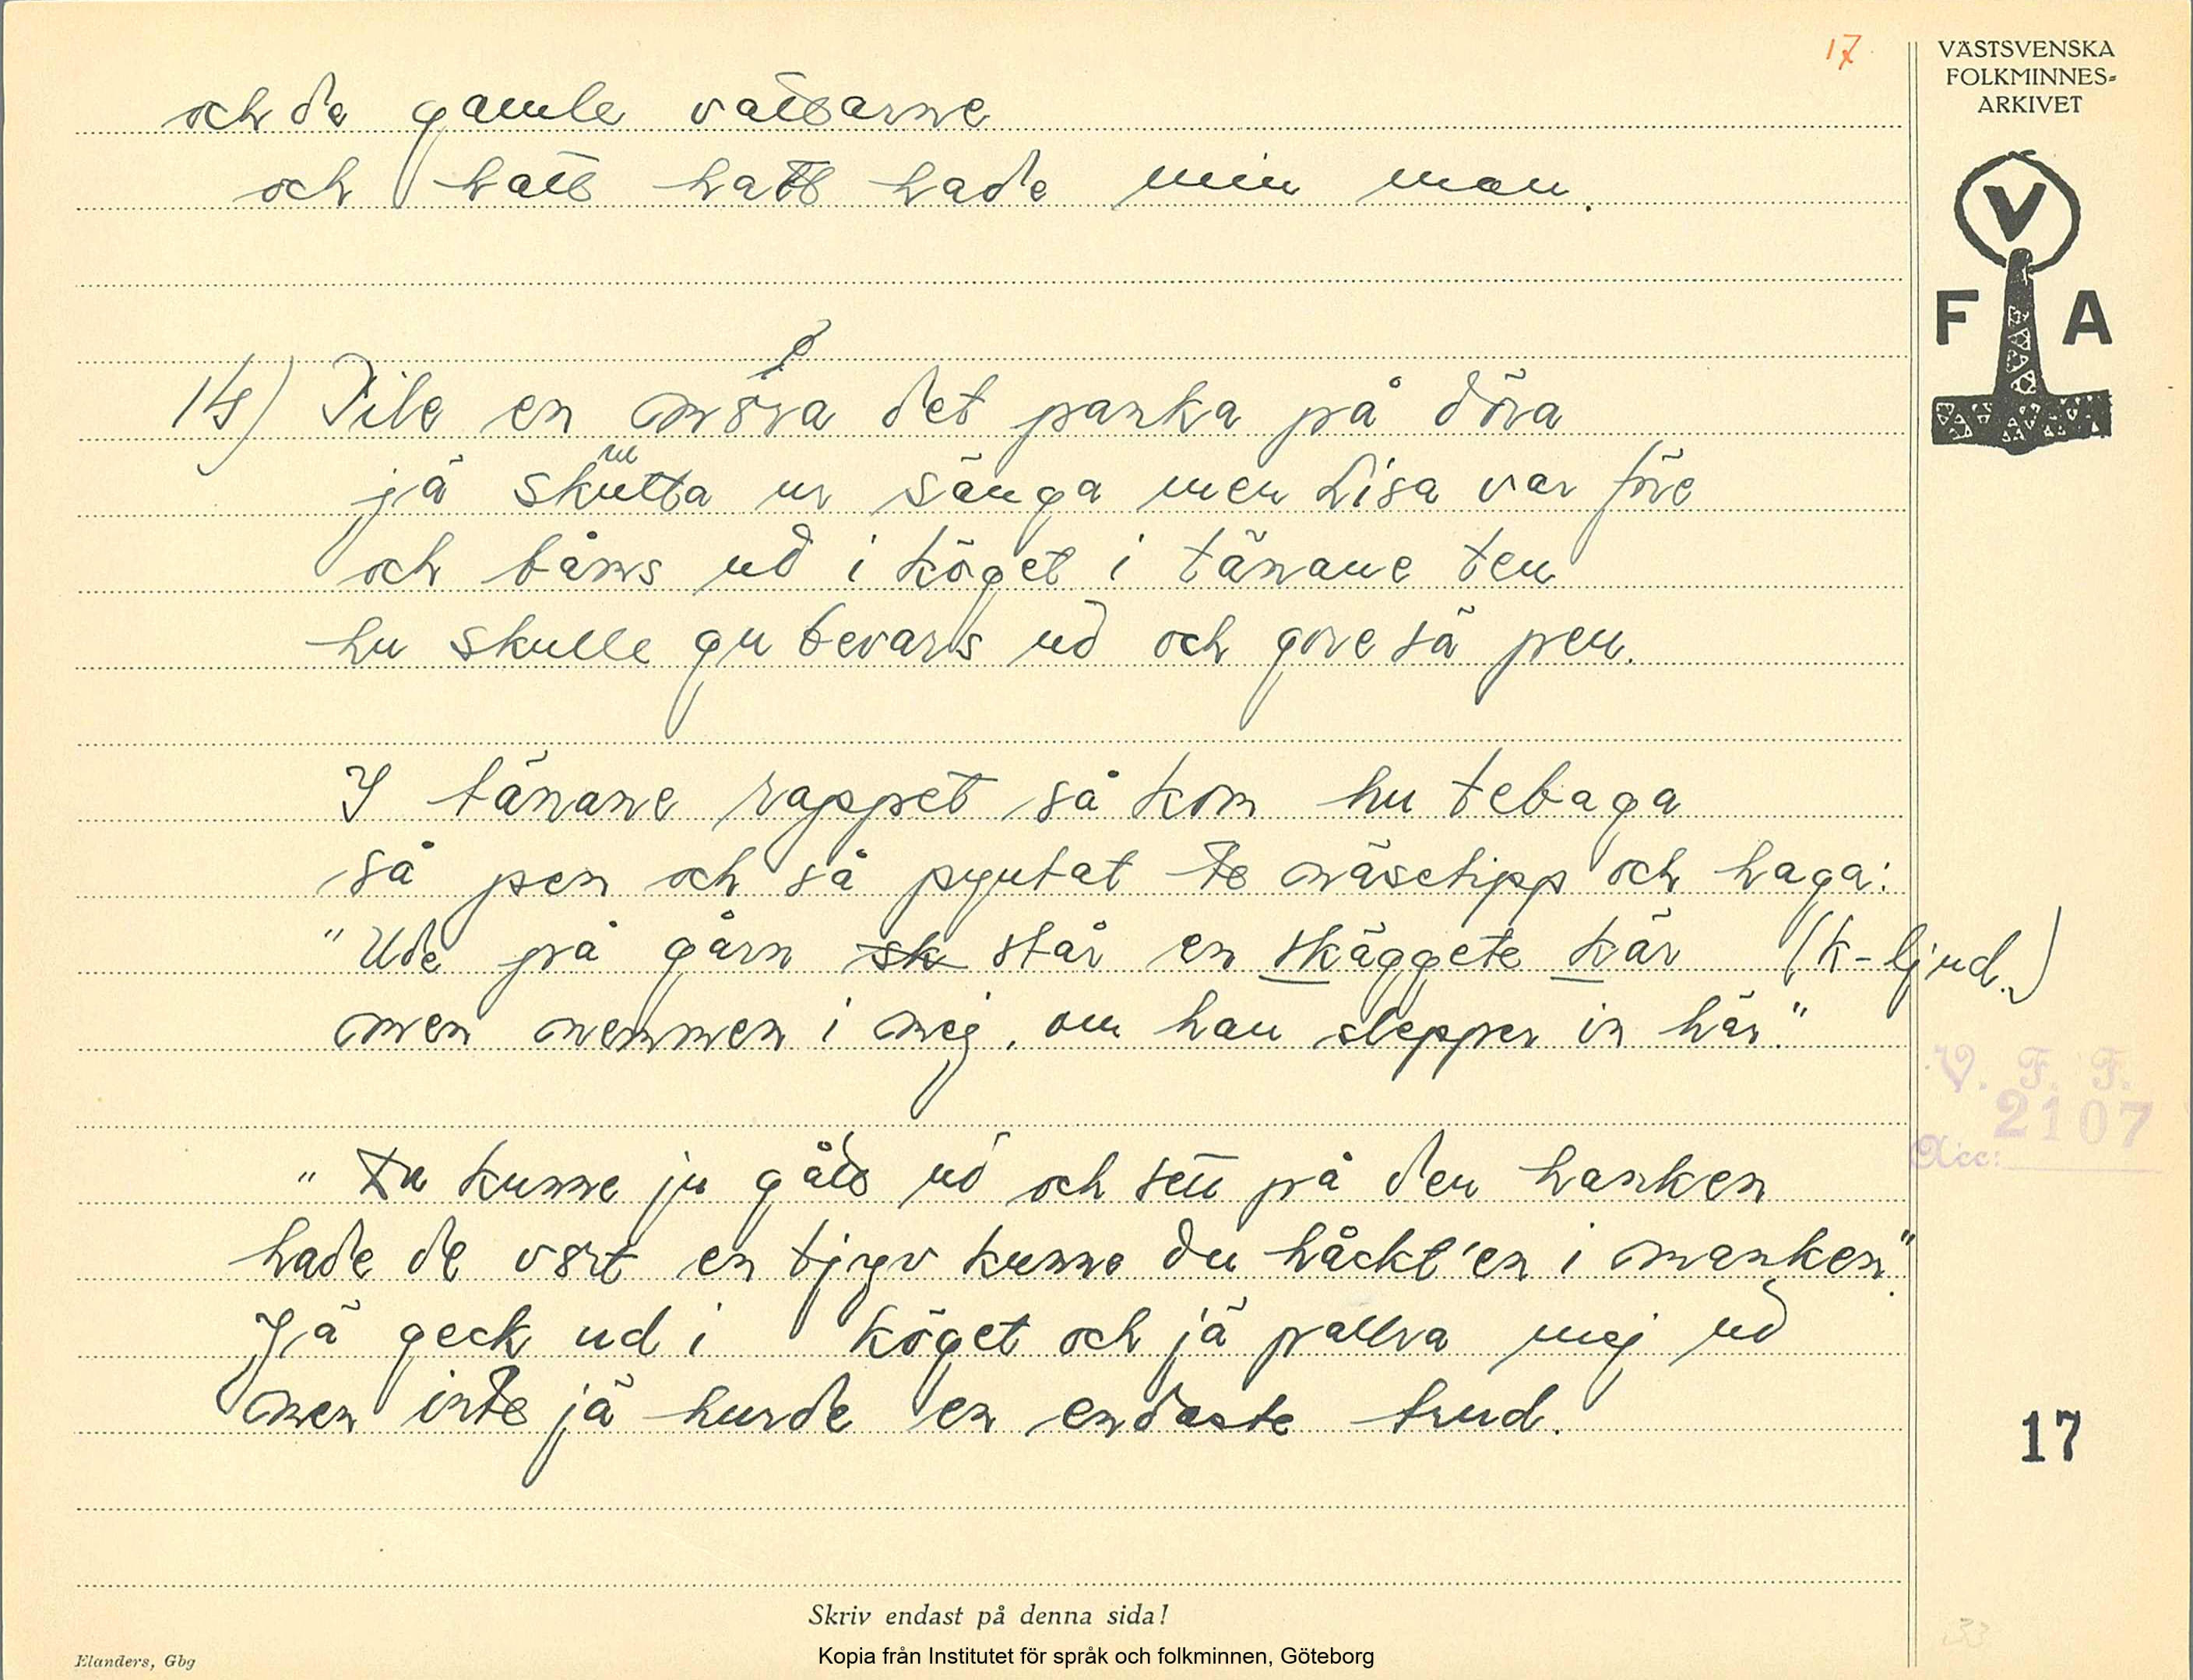 17
VÄSTSVENSKA
FOLKMINNES-
ARKIVET
V
F A
och de gamle valsarne
och hatt hatt hade min man.
14) Tile en måra det panka på döra
jä skutta ur sänga men Lisa var före
och båms ud i köget i tänane ten
hu skulle gu bevars ud och gore sä pen.
I tänane rappet så kom hu tebaga
så pen och så pyntat te näsetipp och haga:
"Ude på gårn sk står en skäggete kär (k-ljud.)
men nemmen i mej, om han slepper in här."
"Du kunne ju gått ud och sett på den hanken
hade de vart en tjyv kunne du håckt'en i manken"
Jä geck ud i köget och jä pallra mej ud
men inte jä hurde en endaste trud.
V. F. F.
2107
Acc:
17
Skriv endast på denna sida!
Elanders, Gbg
Kopia från Institutet för språk och folkminnen, Göteborg